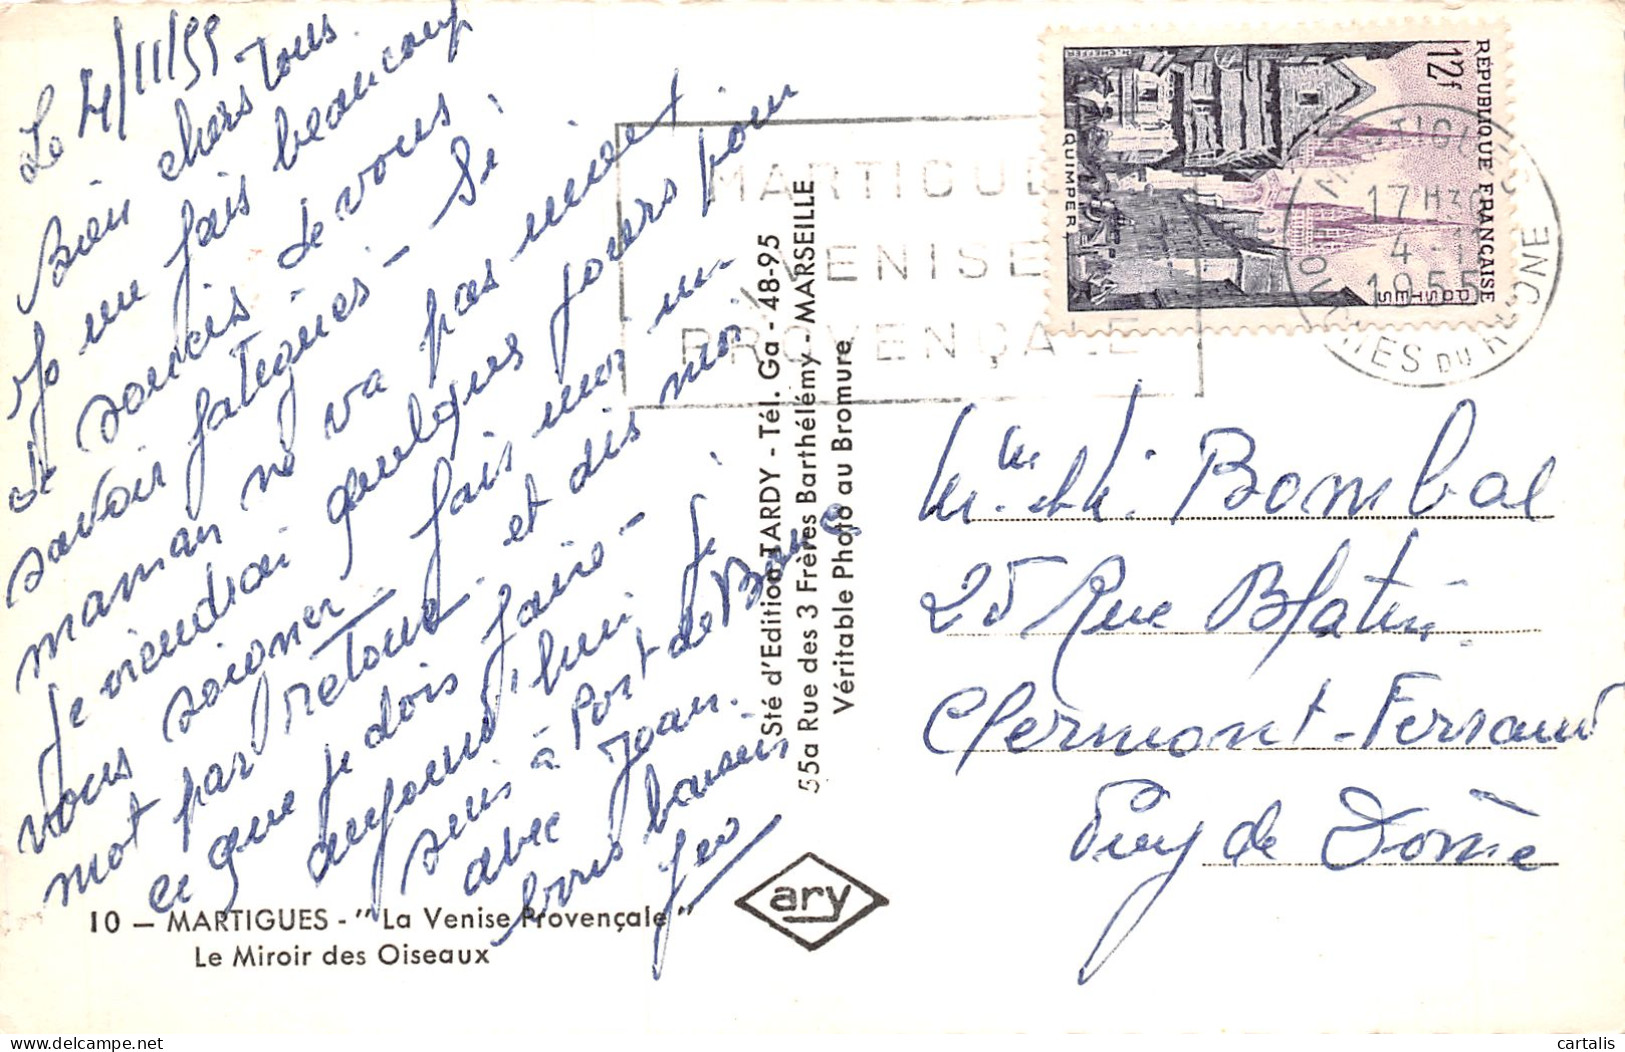 Le 4/11/55
Bien chers Tous.
Je me fais beaucoup
de soucis - de vous
savoir fatigués - Si
maman ne va pas mieux
je viendrai quelques jours pour
vous soigner. fais moi un
mot par retour. et dis moi
ce que je dois faire -
aujourd'hui je
suis à Port de Bouc
avec Jean.
bons baisers
Jeo
10 — MARTIGUES - "La Venise Provençale"
Le Miroir des Oiseaux
Sté d'Edition TARDY - Tél. Ga - 48-95
55a Rue des 3 Frères Barthélémy - MARSEILLE
Véritable Photo au Bromure
ary
MARTIGUES
VENISE
PROVENÇALE
RÉPUBLIQUE FRANÇAISE
12f
POSTES
QUIMPER
17H30
4 - 11
1955
BOUCHES DU RHONE
Mme et M. Bombal
25 Rue Blatin.
Clermont-Ferrand
Puy de Dôme
cartalis